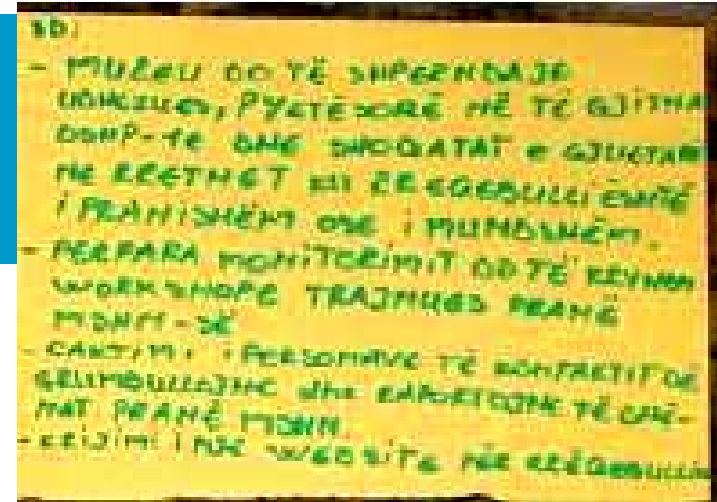 SD:
- MUZEU DO TË SHPËRNDAJE
UDHËZUES, PYETËSORË NË TË GJITHA
DSHP-të DHE SHOQATAT e GJUETARË
NË RRETHET KU RREQEBULLI ËSHTË
I PRANISHËM OSE I MUNDSHËM.
- PËRPARA MONITORIMIT DO TË KRYHEN
WORKSHOPE TRAJNUES PRANË
MSHN-SË
- CAKTIMI I PERSONAVE TË KONTAKTIT QË
GRUMBULLOJNË dhe RAPORTOJNË TË DHË-
NAT PRANË MSHN.
- KRIJIMI I NJË WEBSITE PËR RREQEBULLIN